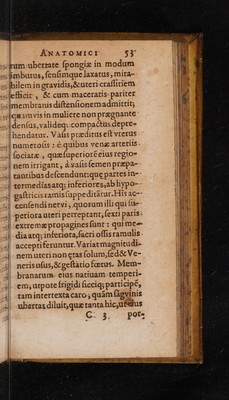 ANATOMICI 53
rum ubertate spongiæ in modum
imbutus, sensimque laxatus, mira-
bilem in gravidis, & uteri crassitiem
efficit, & cum maceratis pariter
membranis distensionem admittit;
quamvis in muliere non prægnante
densus, valideq; compactus depre-
hendatur. Vasis præditus est vterus
numerosis: è quibus venæ arteriis
sociatæ, quæ superiorē eius regio-
nem irrigant, à vasis semen præpa-
rantibus descendunt: quę partes in-
termedias atq; inferiores, ab hypo-
gastricis ramis suppeditātur. His ac-
censendi nervi, quorum illi qui su-
periora uteri perreptant, sexti paris
extremæ propagines sunt: qui me-
dia atq; inferiora, sacri ossis ramulis
accepti feruntur. Variat magnitudi-
nem uteri non ętas solum, sed & Ve-
neris usus, & gestatio fœtus. Mem-
branarum eius nativam temperi-
em, utpote frigidi siccíq; participē,
tam intertexta caro, quàm sāguinis
ubertas diluit, quæ tanta hic, ut eius
C 3 por-